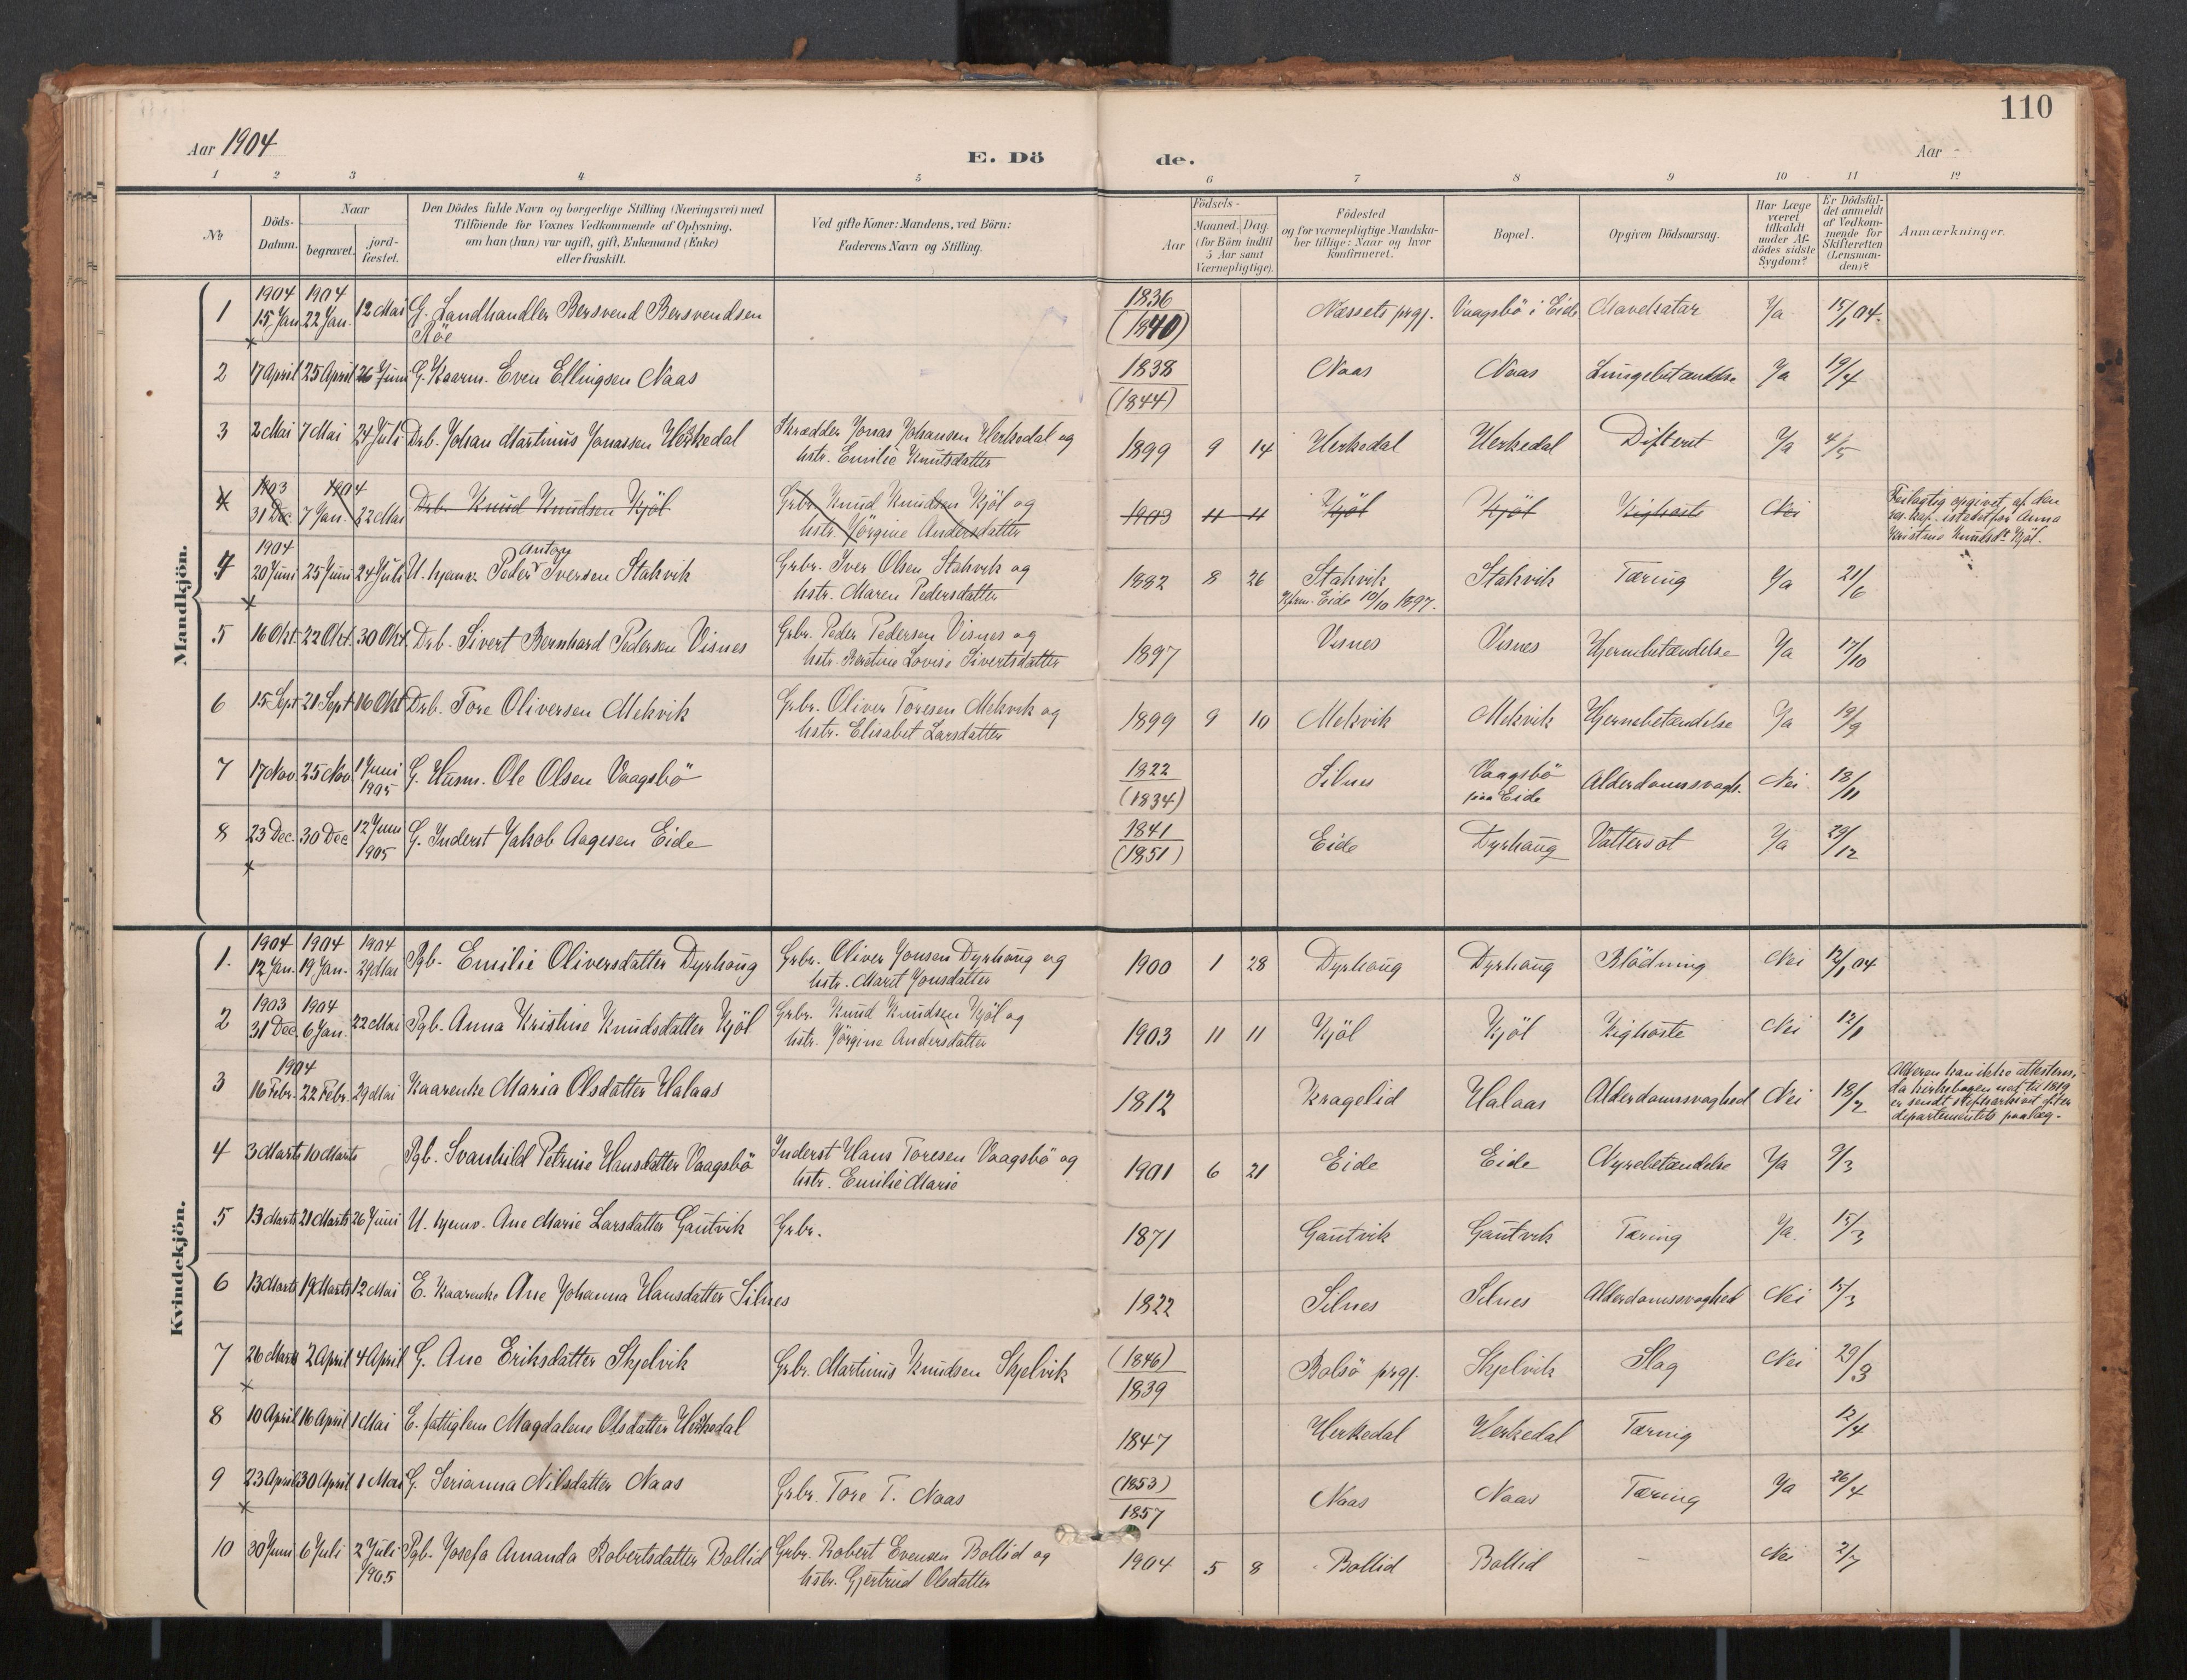 110
Aar 1904
E. Dö
de.
Aar
1 2 3 4 5 6 7 8 9 10 11 12
№
Döds-Datum.
Naar
begravet.
jord-fæstet.
Den Dödes fulde Navn og borgerlige Stilling (Næringsvei) med
Tilföiende for Voxnes Vedkommende af Oplysning,
om han (hun) var ugift, gift, Enkemand (Enke)
eller fraskilt.
Ved gifte Koner: Mandens, ved Börn:
Faderens Navn og Stilling.
Födsels-
Aar
Maaned. Dag.
(for Börn indtil
5 Aar samt
Værnepligtige).
Födested
og for værnepligtige Mandska-
ber tillige: Naar og hvor
konfirmeret.
Bopæl.
Opgiven Dödsaarsag.
Har Læge
været
tilkaldt
under Af-
dödes sidste
Sygdom?
Er Dödsfal-
det anmeldt
af Vedkom-
mende for
Skifteretten
(Lensman-
den)?
Anmærkninger.
Mandkjön.
1904 1904
1 15 Jan. 22 Jan. 12 Mai G. Landhandler Bersvend Bersvendsen 1836 Næssets prgj. Vaagsbö i Eide Mavekatar Ja 15/1 04.
Röe (1840)
2 17 April 25 April 26 Juni G. Kaarm. Even Ellingsen Naas 1838 Naas Naas Lungebetændelse Ja 19/4
(1844)
3 2 Mai 7 Mai 24 Juli Drb. Johan Martinus Jonassen Herkedal Skrædder Jonas Johansen Herkedal og 1899 9 14 Herkedal Herkedal Difterit Ja 4/5
hstr. Emilie Knutsdatter
1903 1904
4 31 Dec. 7 Jan. 22 Mai Drb. Knud Knudsen Kjöl Grbr. Knud Knudsen Kjöl og 1903 11 11 Kjöl Kjöl Kighoste Nei Feilagtig opgivet af den
hstr. Jörgine Andersdatter res. kap. istedetfor Anna
Kristine Knudsdr. Kjöl.
1904
4 20 Juni 25 Juni 24 Juli U. hjemv. Peder Antony Iversen Stakvik Grbr. Iver Olsen Stakvik og 1882 8 26 Stakvik Stakvik Tæring Ja 21/6
hstr. Maren Pedersdatter Kfrm. Eide 10/10 1897.
5 16 Okt. 22 Okt. 30 Okt. Drb. Sivert Bernhard Pedersen Visnes Grbr. Peder Pedersen Visnes og 1897 Visnes Visnes Hjernebetændelse Ja 17/10
hstr. Beretine Lovise Sivertsdatter
6 15 Sept 21 Sept 16 Okt Drb. Tore Oliversen Mekvik Grbr. Oliver Toresen Mekvik og 1899 9 10 Mekvik Mekvik Hjernebetændelse Ja 19/9
hstr. Elisabet Larsdatter
7 17 Nov. 25 Nov. 1 Juni 1905 G. Husm. Ole Olsen Vaagsbö 1822 Silnes Vaagsbö Alderdomssvagh. Nei 18/11
(1834) paa Eide
8 23 Dec. 30 Dec 12 Juni 1905 G. Inderst Jakob Aagesen Eide 1841 Eide Dyrhaug Vattersot Ja 29/12
(1851)
Kvindekjön.
1904 1904 1904
1. 12 Jan. 19 Jan. 29 Mai Pgb. Emilie Oliversdatter Dyrhaug Grbr. Oliver Jonsen Dyrhaug og 1900 1 28 Dyrhaug Dyrhaug Blödning Nei 12/1 04
hstr. Marit Jonsdatter
1903 1904
2 31 Dec. 6 Jan. 22 Mai Pgb. Anna Kristine Knudsdatter Kjöl Grbr. Knud Knudsen Kjöl og 1903 11 11 Kjöl Kjöl Kighoste Nei 12/1
hstr. Jörgine Andersdatter
1904
3 16 Febr. 22 Febr. 29 Mai Kaarenke Maria Olsdatter Halaas 1812 Kragelid Halaas Alderdomssvaghed Nei 18/2 Alderen kan ikke attesteres,
da kirkebogen ned til 1819
er sendt stiftsarkivet efter
departementets paalæg.
4 3 Marts 10 Marts Pgb. Svanhild Petrine Hansdatter Vaagsbö Inderst Hans Toresen Vaagsbö og 1901 6 21 Eide Eide Nyrebetændelse Ja 9/3
hstr. Emilie Marie
5 13 Marts 21 Marts 26 Juni U. hjemv. Ane Marie Larsdatter Gautvik Grbr. 1871 Gautvik Gautvik Tæring Ja. 15/3
6 13 Marts 19 Marts 12 Mai E. Kaarenke Ane Johanna Hansdatter Silnes 1822 Silnes Silnes Alderdomssvaghed Nei 15/3
7 26 Marts 2 April 4 April G. Ane Eriksdatter Skjelvik Grbr. Martinus Knudsen Skjelvik (1846) Bolsö prgj. Skjelvik Slag Nei 29/3
1839
8 10 April 16 April 1 Mai E. fattiglem Magdalene Olsdatter Herkedal 1847 Herkedal Herkedal Tæring 12/4
9 23 April 30 April 1 Mai G. Serianna Nilsdatter Naas Grbr. Tore T. Naas (1853) Naas Naas Tæring Ja 26/4
1857
10 30 Juni 6 Juli 2 Juli 1905 Pgb. Josefa Amanda Robertsdatter Bollid Grbr. Robert Evensen Bollid og 1904 5 8 Bollid Bollid - Nei 2/7
hstr. Gjertrud Olsdatter